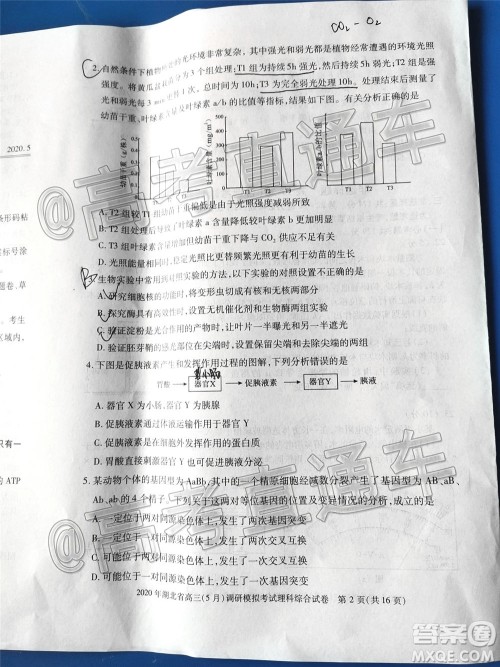 CO₂ - O₂
2. 自然条件下植物的光环境非常复杂，其中强光和弱光都是植物经常遭遇的环境光照
为3个组处理：T1组为持续5h强光，然后持续5h弱光；T2组是强
和弱光每3
T3为完全弱光处理10h。处理结束后测量了
幼苗干重、叶绿素a/b的比值等指标，结果如下图。有关分析正确的是
幼苗干重(g/株)
0.5
0.4
0.3
0.2
0.1
500
400
300
200
100
T1 T2 T3
T1 T2 T3
2020.5
条形码粘
标号涂
题卷、草
考生
区域内，
只有一
的 ATP
A. T2组较T1组幼苗干重偏低是由于光照强度减弱所致
B. T2组较T1组叶绿素a含量降低较叶绿素b更加明显
C. T3组叶绿素含量充足但幼苗干重下降与CO₂供应不足有关
D. 光照能量相同时，长周期光更替比频繁光更替更有利于植物的生长
B
3. 生物实验中常用到对照实验的方法，以下实验的对照设置不正确的是
A. 研究细胞核的功能时，将变形虫切成有核和无核两部分
B. 探究酶具有高效性时，设置有酶和无酶两组实验
C. 验证淀粉是光合作用的产物时，让叶片一半曝光和另一半遮光
D. 验证胚芽鞘的感光部位在尖端时，设置保留尖端和去除尖端两组
4. 下图是促胰液素产生和发挥作用过程的图解，下列分析错误的是
小肠
胃酸 → 器官X → 促胰液素 → 器官Y → 胰液
A. 器官X为小肠，器官Y为胰腺
B. 促胰液素通过体液运输作用于器官Y
C. 促胰液素是具有催化作用的蛋白质
D. 胃酸直接刺激器官Y也可促进胰液分泌
5. 某动物个体的基因型为AaBb，其中的一个精原细胞经减数分裂产生了基因型为AB、aB、
Ab、ab的4个精子。下列关于该过程中的基因位置及变异情况的分析，成立的是
A. 一定位于两对同源染色体上，发生了两次基因突变
B. 可能位于两对同源染色体上，发生了两次交叉互换
C. 可能位于一对同源染色体上，发生了两次基因突变
D. 一定位于一对同源染色体上，发生了一次交叉互换
2020年湖北省高三(5月)调研模拟考试理科综合试卷 第2页(共16页)
@高考直通车
@高考直通车
答案圈
MXQE.COM